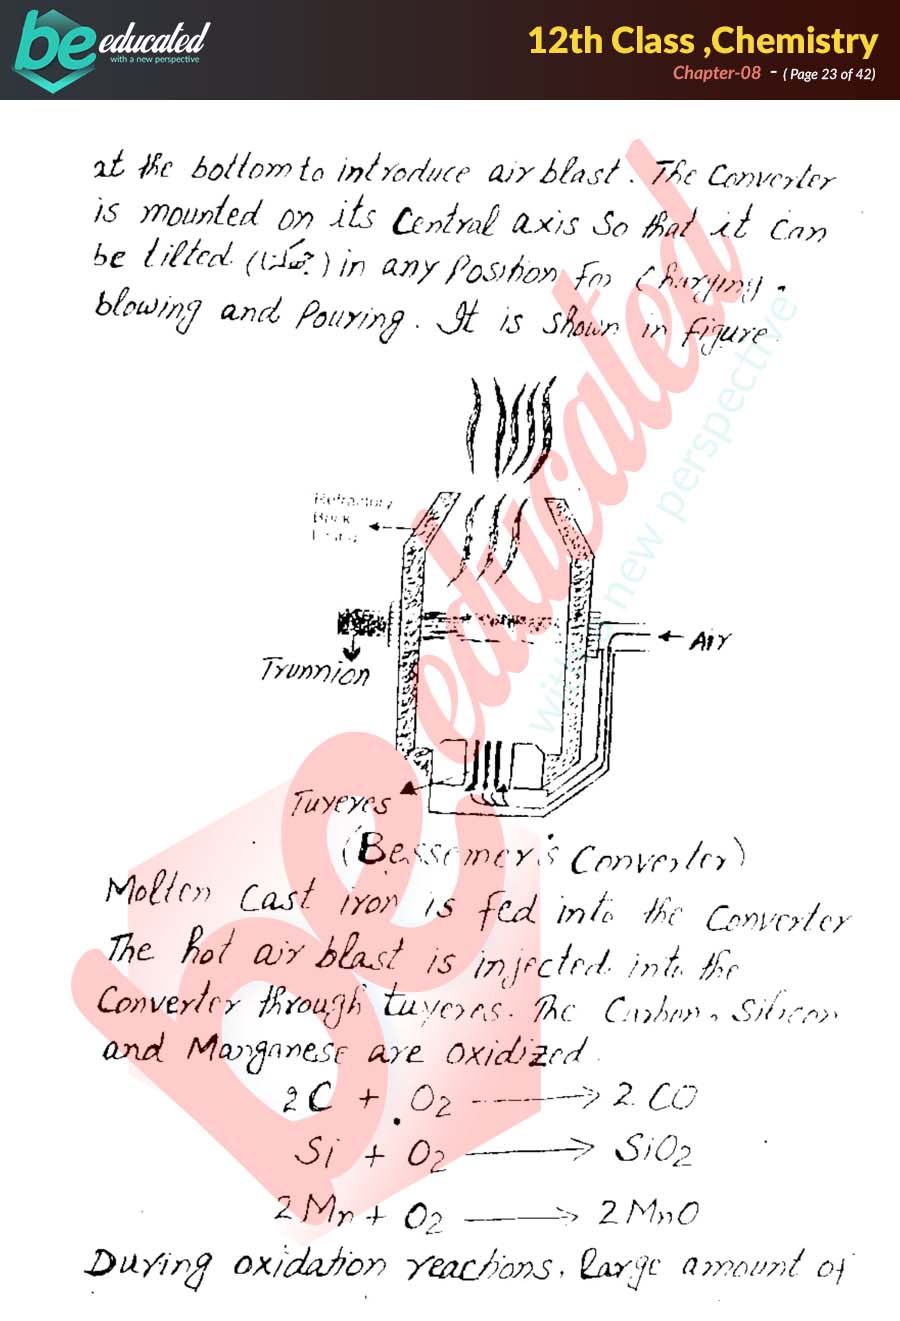 be educated
with a new perspective
12th Class ,Chemistry
Chapter-08 - ( Page 23 of 42)
at the bottom to introduce air blast. The Converter
is mounted on its Central axis so that it can
be tilted () in any Position for Charging,
blowing and Pouring. It is shown in figure.
Refractory
Brick
Air
Trunnion
Tuyeres
(Bessemer's Converter)
Molten Cast iron is fed into the Converter
The hot air blast is injected into the
Converter through tuyeres. The Carbon, Silicon
and Manganese are oxidized.
2C + O2 → 2CO
Si + O2 → SiO2
2Mn + O2 → 2MnO
During oxidation reactions, large amount of
be educated
with a new perspective